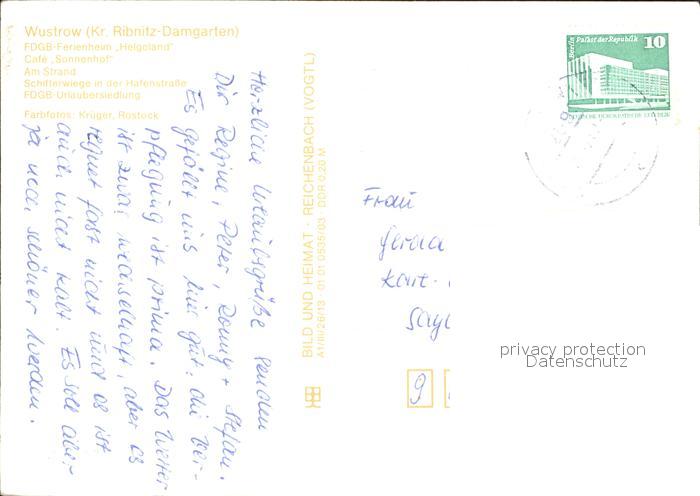 Wustrow (Kr. Ribnitz-Damgarten)
FDGB-Ferienheim „Helgoland"
Café „Sonnenhof"
Am Strand
Schifferwiege in der Hafenstraße
FDGB-Urlaubersiedlung
Farbfotos: Krüger, Rostock
Herzliche Urlaubsgrüße senden
Dir Regina, Peter, Ronny + Stefan.
Es gefällt uns hier gut; die Ver-
pflegung ist prima. Das Wetter
ist zwar wechselhaft, aber es
regnet fast nicht und es ist
auch nicht kalt. Es soll aber
ja noch schöner werden.
BILD UND HEIMAT · REICHENBACH (VOGTL)
A1/III/26/13 01 01 0535/03 DDR 0,20 M
Berlin Palast der Republik
10
DEUTSCHE DEMOKRATISCHE REPUBLIK
Frau
Gerda
Karl-
9
privacy protection
Datenschutz